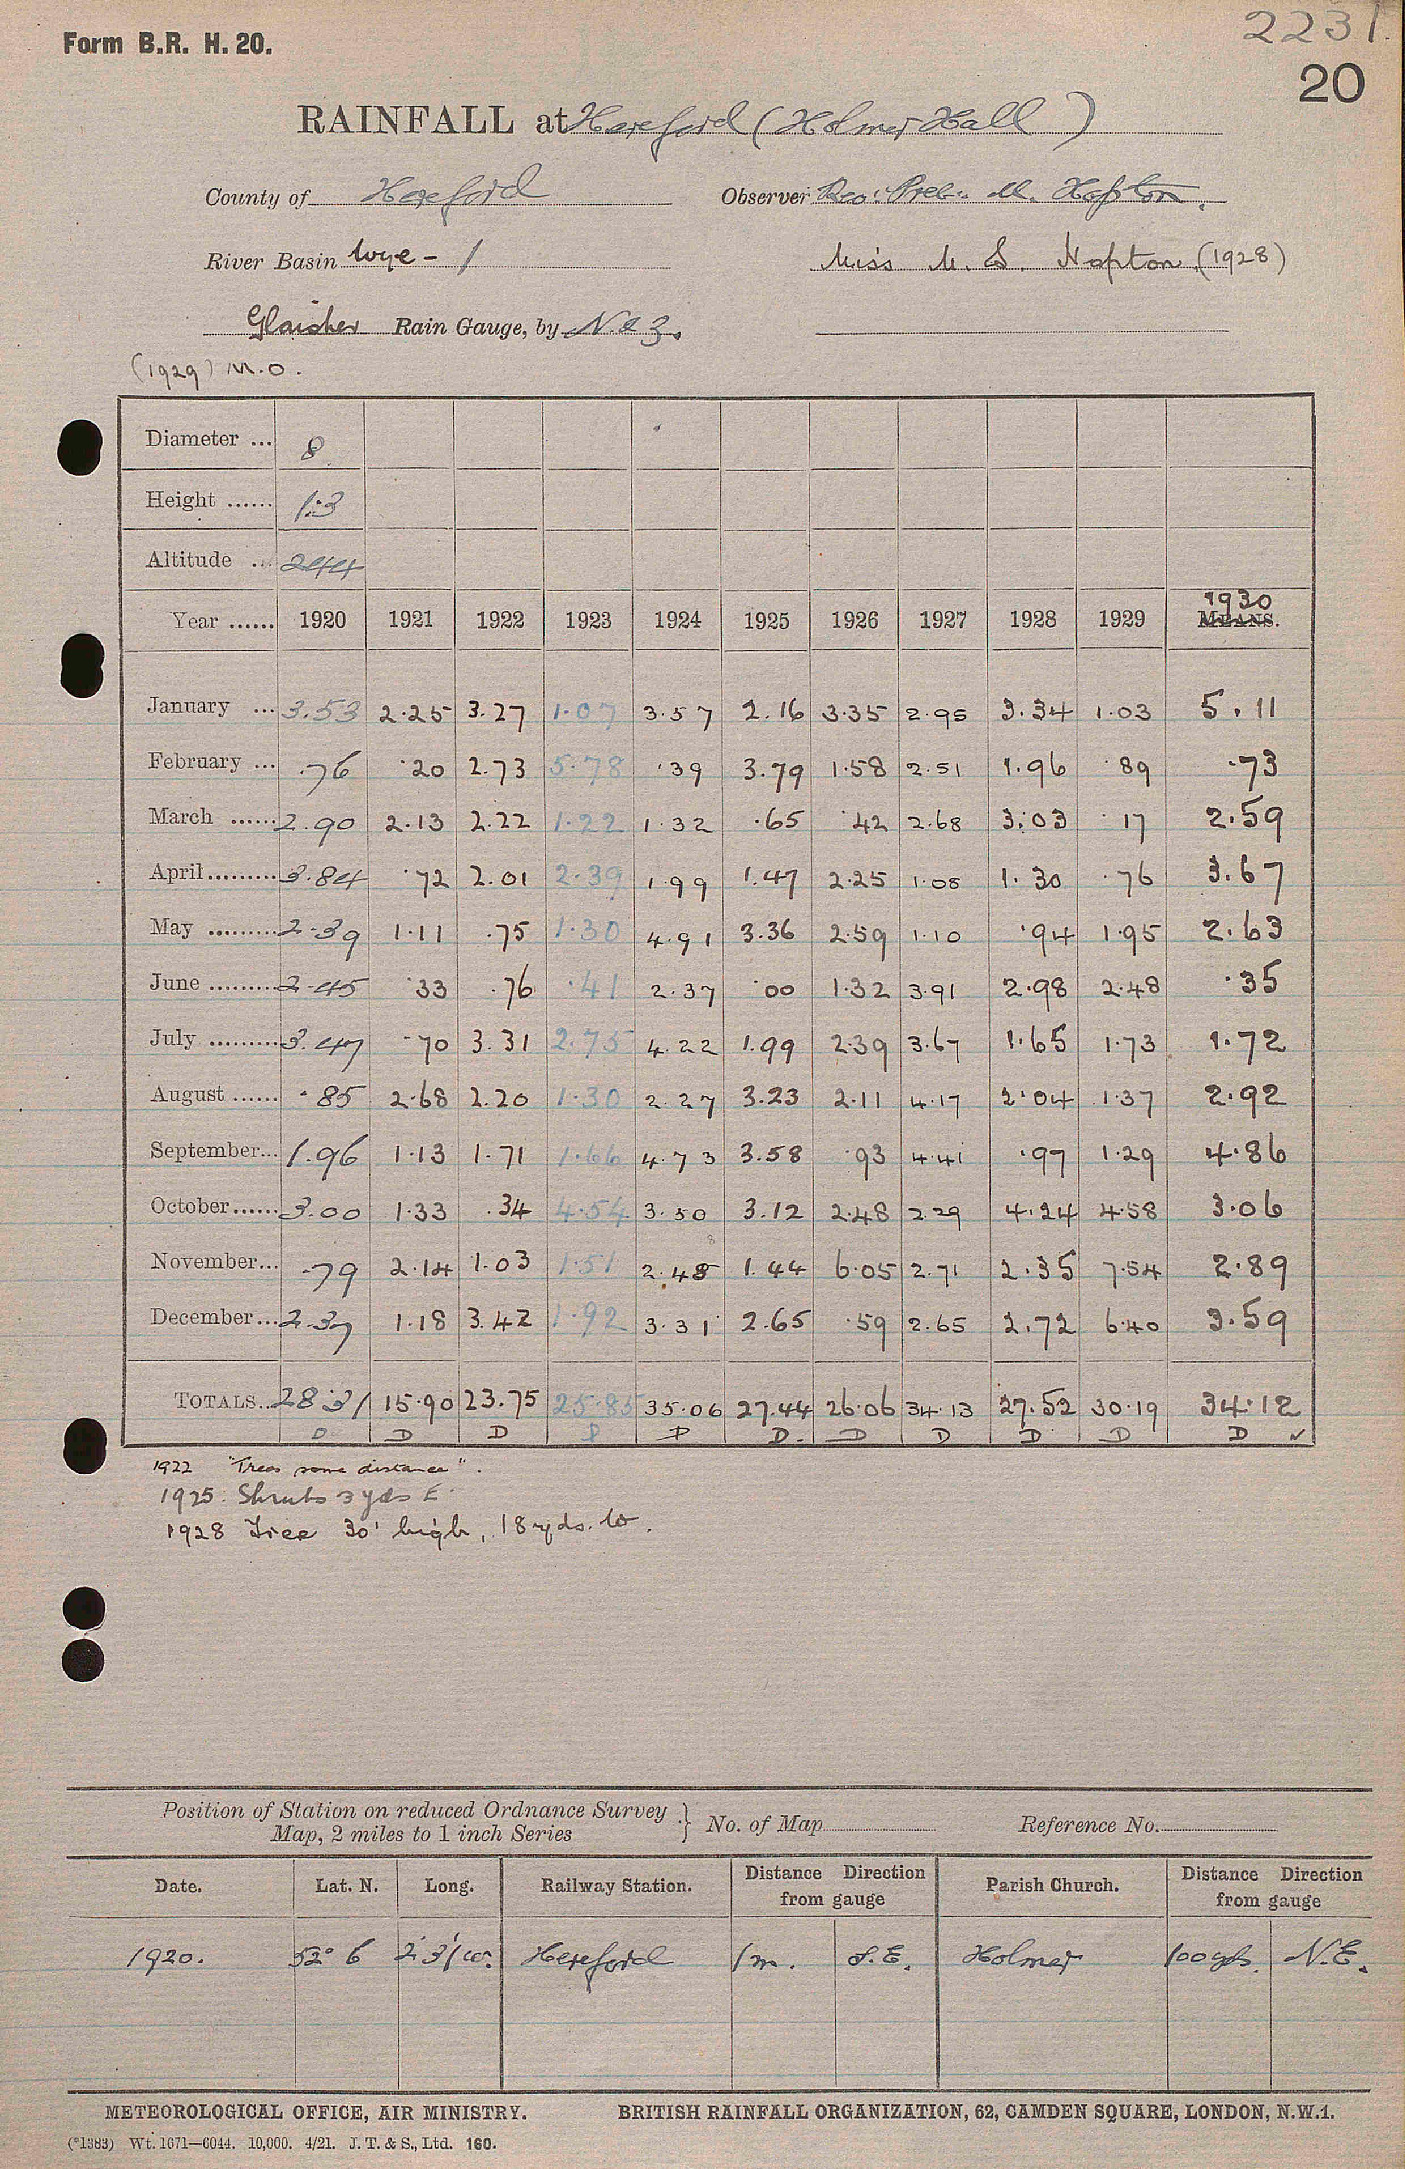 2231.
Form B.R. H. 20.
20
RAINFALL at Hereford (Holmer Hall)
County of Hereford Observer Rev. Preb. M. Hopton.
River Basin Wye - 1 Miss M. S. Hopton (1928)
Glaisher Rain Gauge, by N & Z.
(1929) M.O.
Diameter ... 8
Height ...... 1.3
Altitude ... 244
Year ...... 1920 1921 1922 1923 1924 1925 1926 1927 1928 1929 MEANS. 1930
January ... 3.53 2.25 3.27 1.07 3.57 2.16 3.35 2.95 3.34 1.03 5.11
February ... .76 .20 2.73 5.78 .39 3.79 1.58 2.51 1.96 .89 .73
March ...... 2.90 2.13 2.22 1.22 1.32 .65 .42 2.68 3.03 .17 2.59
April ......... 3.84 .72 2.01 2.39 1.99 1.47 2.25 1.08 1.30 .76 3.67
May ......... 2.39 1.11 .75 1.30 4.91 3.36 2.59 1.10 .94 1.95 2.63
June ......... 2.45 .33 .76 .41 2.37 .00 1.32 3.91 2.98 2.48 .35
July ......... 3.47 .70 3.31 2.75 4.22 1.99 2.39 3.67 1.65 1.73 1.72
August ...... .85 2.68 2.20 1.30 2.27 3.23 2.11 4.17 2.04 1.37 2.92
September... 1.96 1.13 1.71 1.66 4.73 3.58 .93 4.41 .97 1.29 4.86
October ...... 3.00 1.33 .34 4.54 3.50 3.12 2.48 2.29 4.24 4.58 3.06
November... .79 2.14 1.03 1.51 2.48 1.44 6.05 2.71 2.35 7.54 2.89
December ... 2.37 1.18 3.42 1.92 3.31 2.65 .59 2.65 2.72 6.40 3.59
TOTALS... 28.31 15.90 23.75 25.85 35.06 27.44 26.06 34.13 27.52 30.19 34.12
D D D P P D. D D D D D ✓
1922 "Trees some distance".
1925. Shrubs 3 yds E.
1928 Tree 30' high, 18 yds. W.
Position of Station on reduced Ordnance Survey
Map, 2 miles to 1 inch Series } No. of Map Reference No.
Date. Lat. N. Long. Railway Station. Distance Direction from gauge Parish Church. Distance Direction from gauge
1920. 52° 6 2° 31' W. Hereford 1 m. S.E. Holmer 100 yds. N.E.
METEOROLOGICAL OFFICE, AIR MINISTRY. BRITISH RAINFALL ORGANIZATION, 62, CAMDEN SQUARE, LONDON, N.W.1.
(*1383) Wt. 1671—6044. 10,000. 4/21. J. T. & S., Ltd. 160.